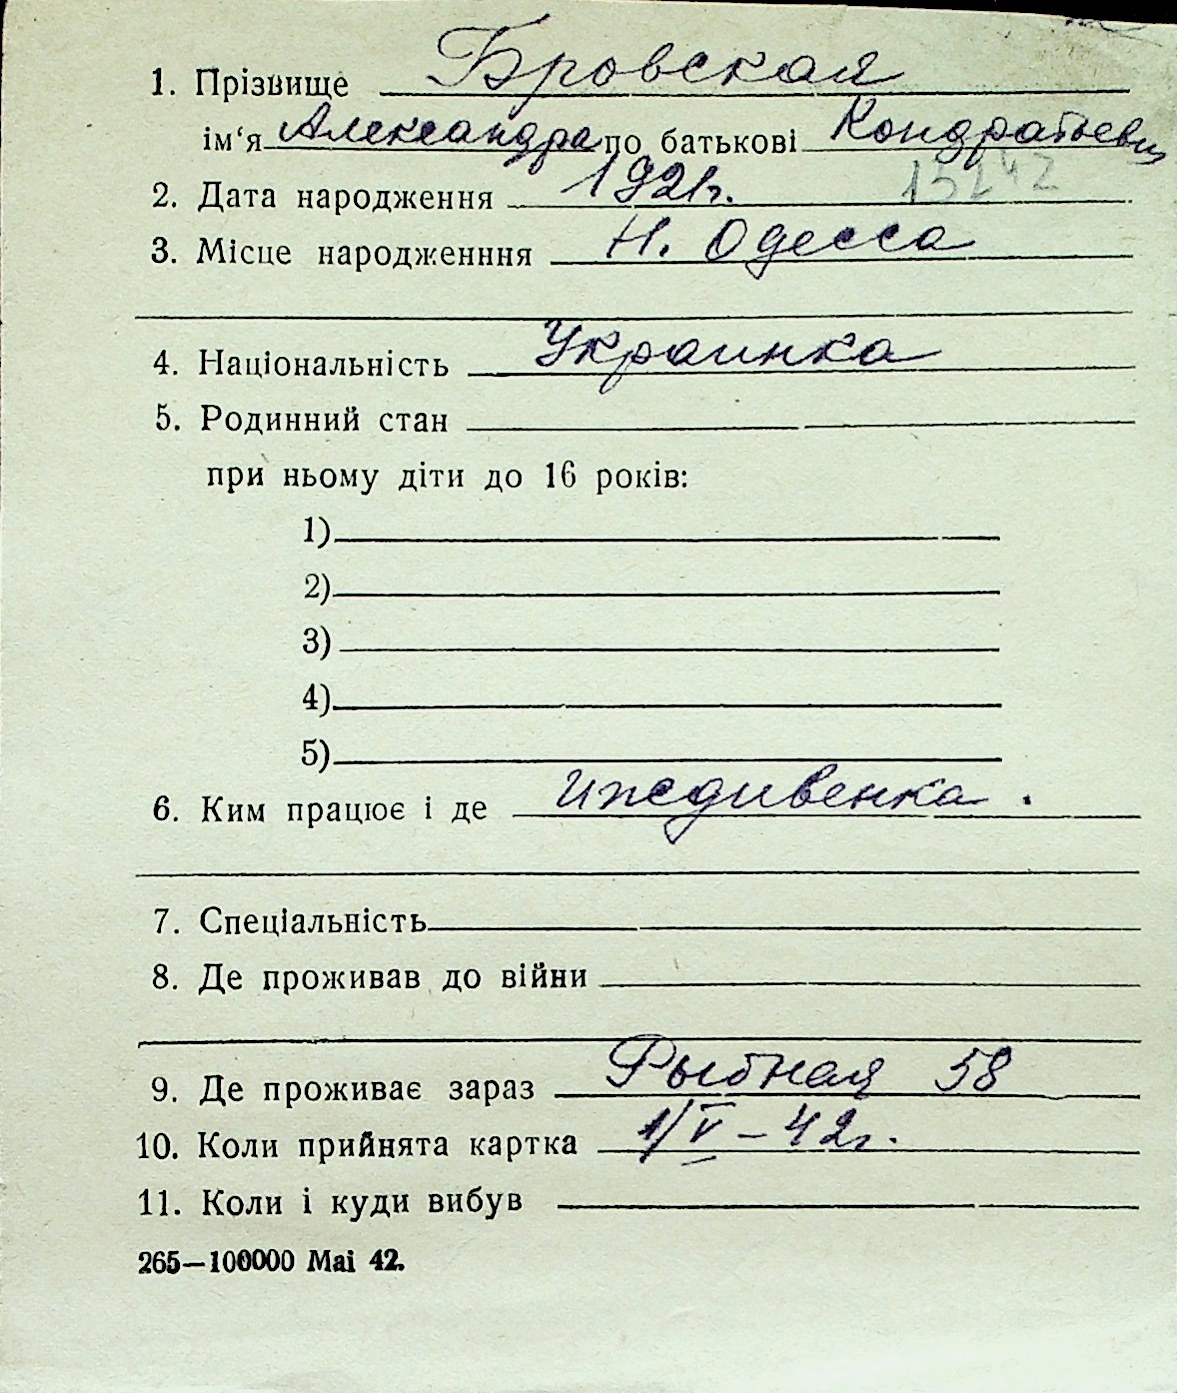 1. Прізвище Бровская
ім‘я Александра по батькові Кондратьевн
15242
2. Дата народження 1921г.
3. Місце народженння Н. Одесса
4. Національність Украинка
5. Родинний стан
при ньому діти до 16 років:
1)
2)
3)
4)
5)
6. Ким працює і де иждивенка.
7. Спеціальність
8. Де проживав до війни
9. Де проживає зараз Рыбная 58
10. Коли прийнята картка 1/V – 42г.
11. Коли і куди вибув
265—100000 Mai 42.